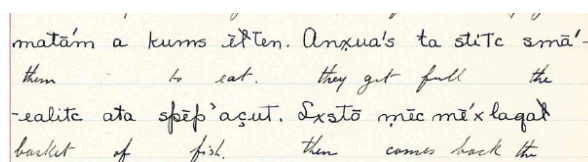 matā́m a kums ēłten. Anx̣ua's ta stiтc smā'-
them to eat. they get full the
-ealitc ata spēp'açut. Łxstō ṃēc mē'x laqał
basket of fish. then comes back the